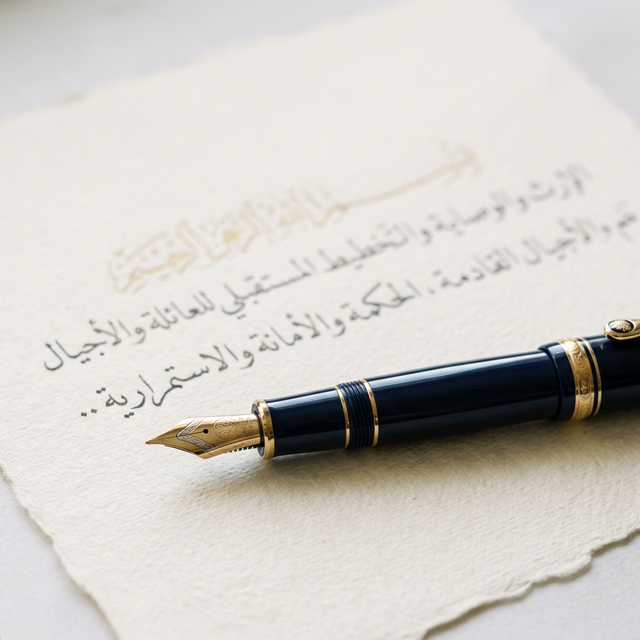 بسم الله الرحمن الرحيم
الإرث والوصاية والتخطيط المستقبلي للعائلة والأجيال
والأجيال القادمة، الحكمة والأمانة والاستمرارية..